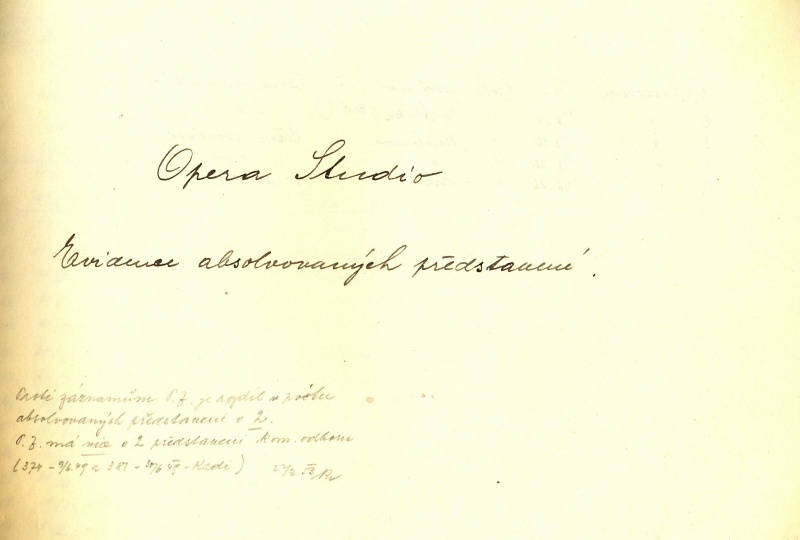 Opera Studio
Evidence absolvovaných představení.
Proti záznamům O.Z. je rozdíl v počtu
absolvovaných představení o 2.
O.Z. má více o 2 představení kom. odboru
(374 - 9/6.49 a 387 - 30/6 49 -